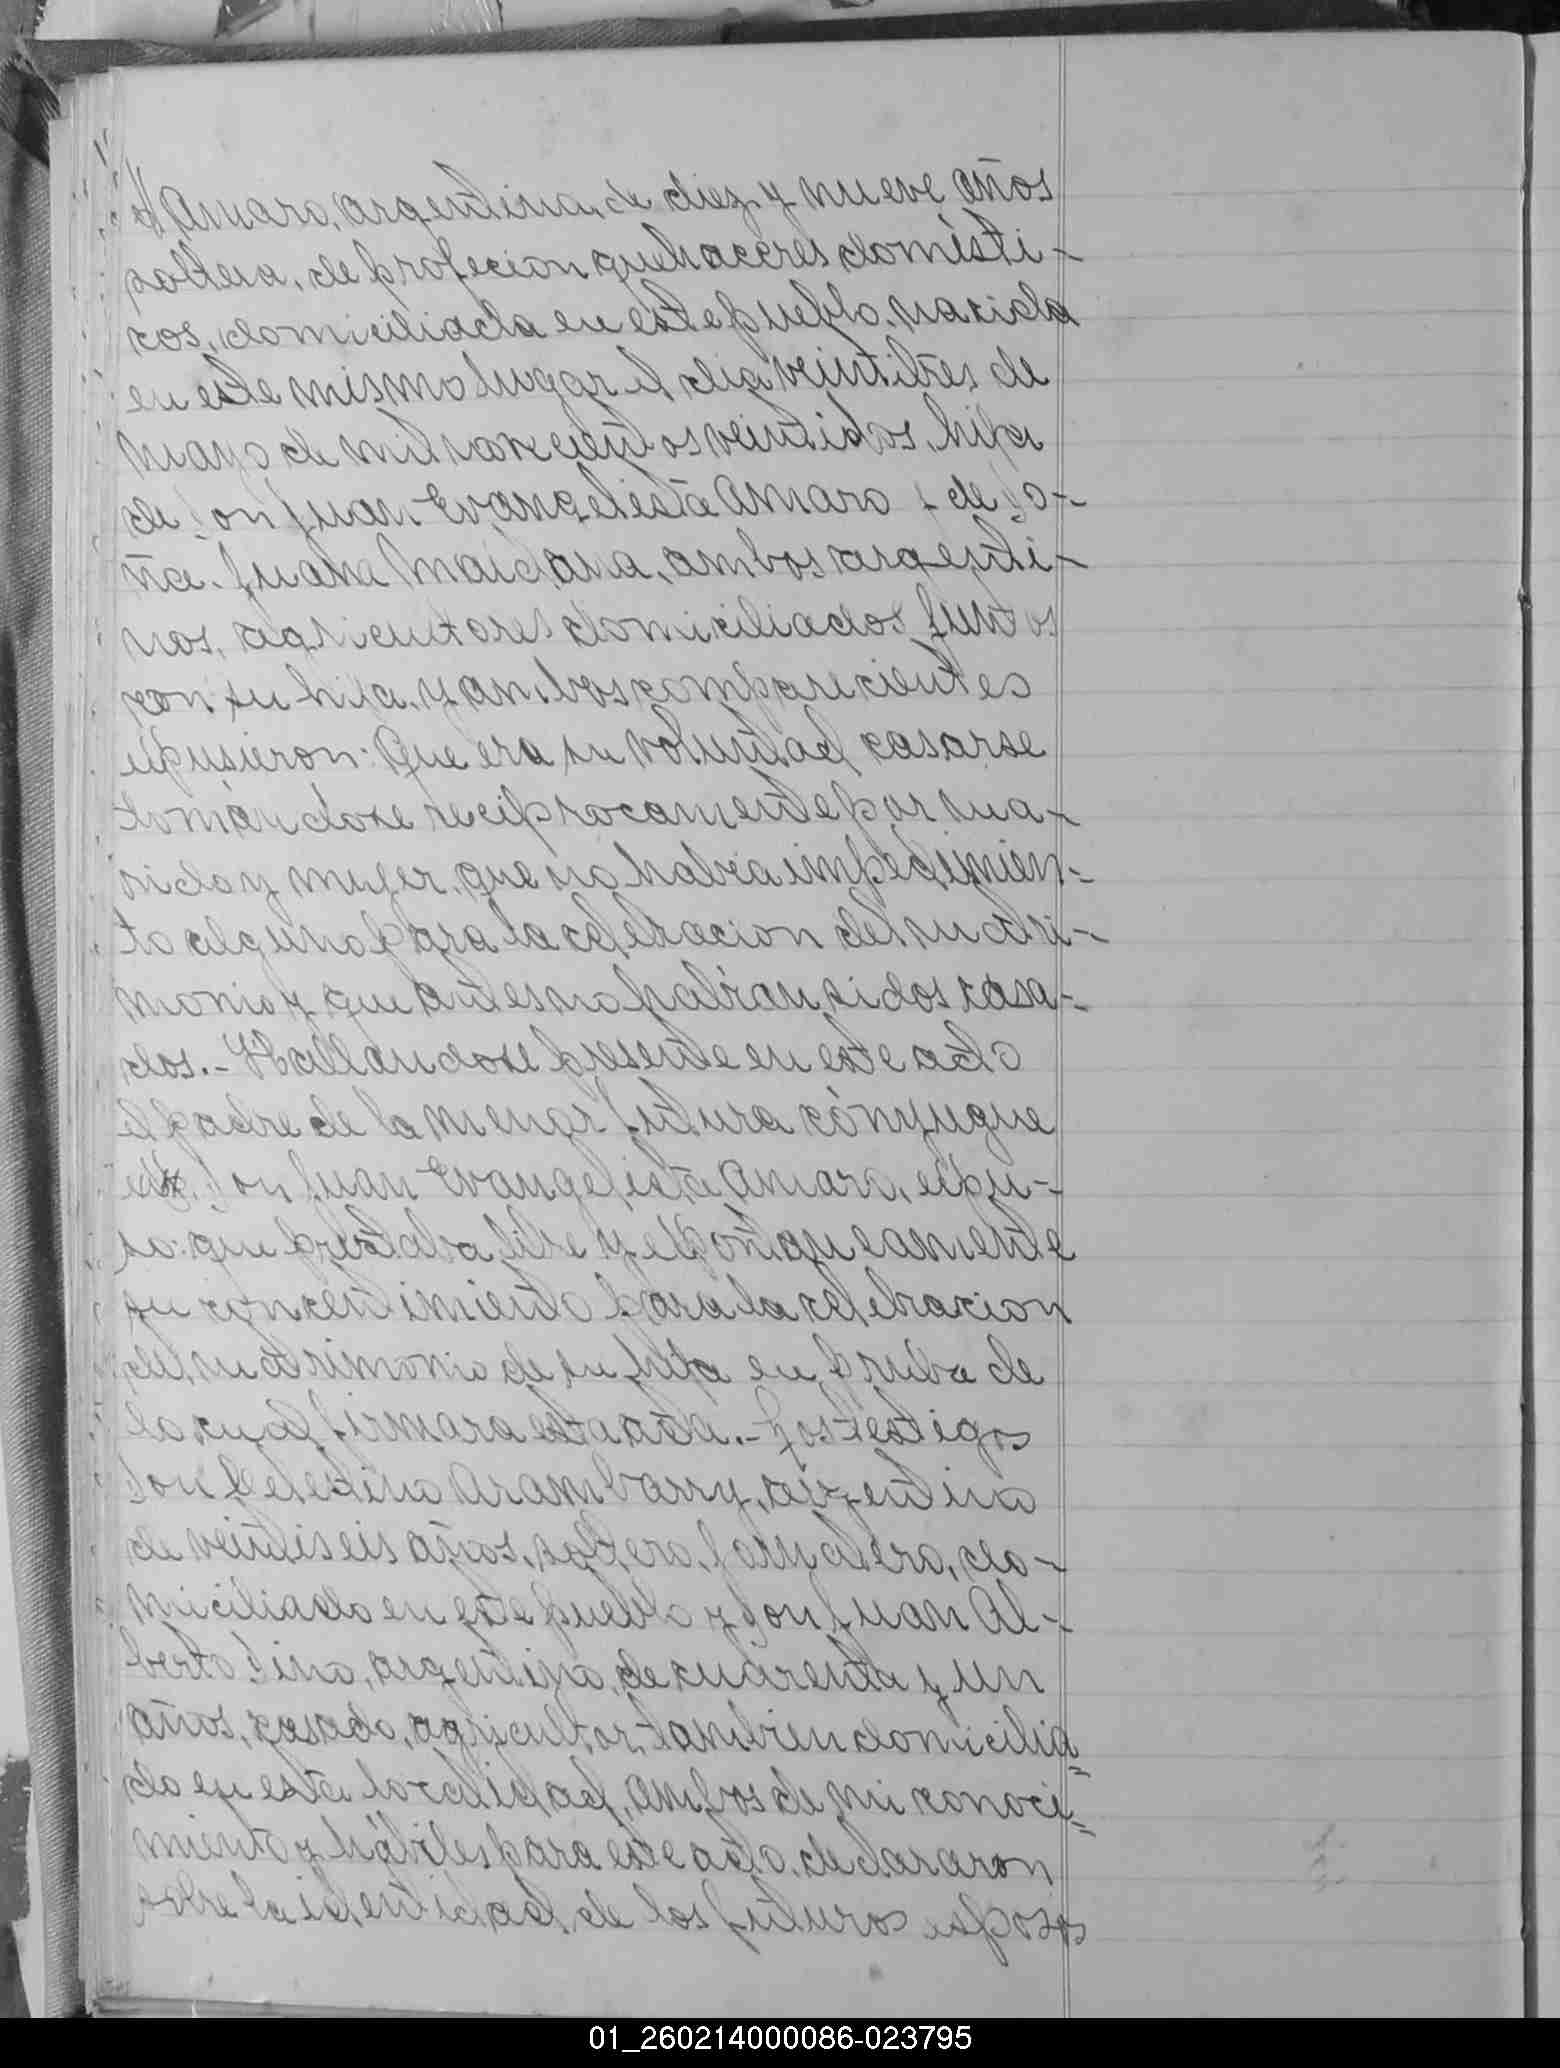 Amaro, argentina, de diez y nueve años
soltera, de profecion quehaceres domésti-
cos, domiciliada en este pueblo, nacida
en este mismo lugar el dia veintitres de
mayo de mil novecientos veintidos, hija
de Don Juan Evangelista Amaro y de Do-
ña Juana Maidana, ambos argenti-
nos, agricultores domiciliados juntos
con su hija, y ambos comparecientes
expusieron: Que era su voluntad casarse
tomándose reciprocamente por ma-
rido y mujer, que no habia impedimien-
to alguno para la celebracion del matri-
monio y que antes no habian sidos casa-
dos.- Hallandose presente en este acto
el padre de la menor futura cónyugue
Don Juan Evangelista Amaro, expu-
so: que prestaba libre y espontaneamente
su concentimiento para la celebracion
del matrimonio de su hija en prueba de
lo cual firmara esta acta.- Los testigos
Don Celestino Aramburry, argentino
de veintiseis años, soltero, jornalero, do-
miciliado en este pueblo y Don Juan Al-
berto Dino, argentino, de cuarenta y un
años, casado, agricultor, tambien domicilia=
do en esta localidad, ambos de mi conoci=
miento y hábiles para este acto, declararon
sobre la identidad de los futuros esposos
01_260214000086-023795